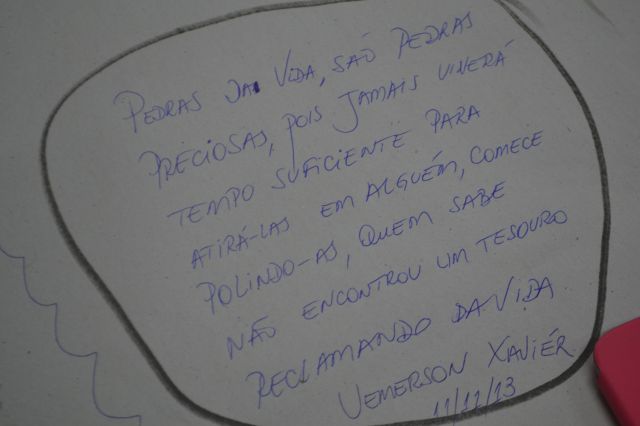 PEDRAS DA VIDA, SÃO PEDRAS
PRECIOSAS, POIS JAMAIS VIVERÁ
TEMPO SUFICIENTE PARA
ATIRÁ-LAS EM ALGUÉM, COMECE
POLINDO-AS, QUEM SABE
NÃO ENCONTROU UM TESOURO
RECLAMANDO DA VIDA
VEMERSON XAVIÉR
11/11/13